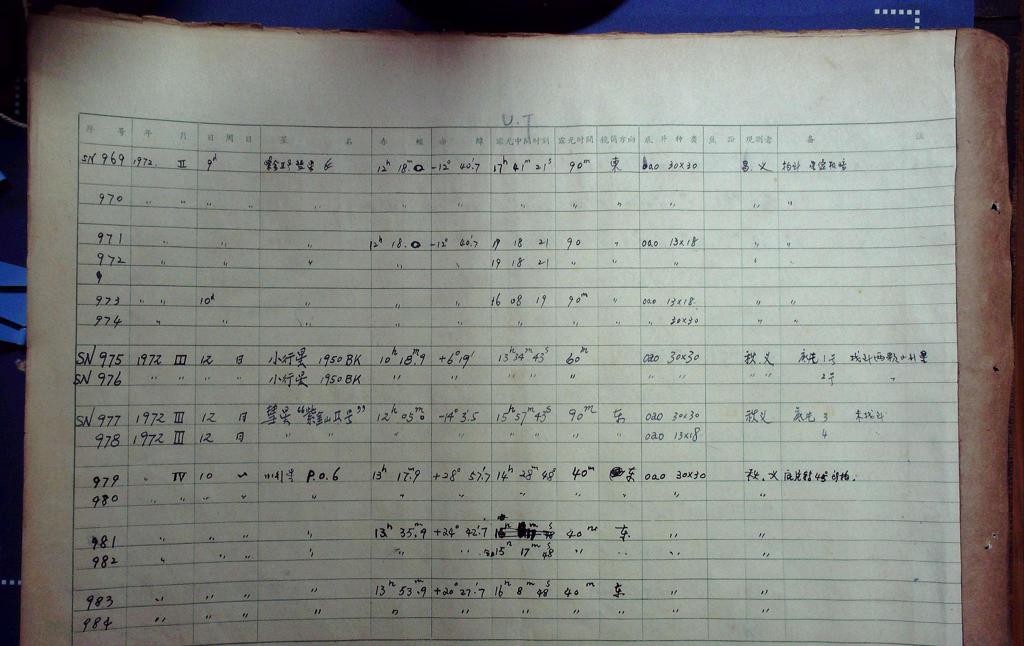 U.T
序 号 年 月 日 周 日 星 名 赤 經 赤 緯 露光中間時刻 露光時間 鏡筒方向 底片种类 观测者 备 註
SN 969 1972 II 9d 12h 18.0 -12° 40.'7 17h 41m 21s 90m 東 oao 30x30 义
970 〃 〃 〃 〃 〃 〃 〃 〃 〃 〃 〃
971 〃 〃 〃 12h 18.0 -12° 40.'7 18 21 90 〃 oao 13x18 〃 〃
972 〃 〃 〃 〃 〃 19 18 21 〃 〃 〃 〃 〃
973 〃 〃 10d 〃 〃 〃 16 08 19 90m 〃 oao 13x18 〃 〃
974 〃 〃 〃 〃 〃 〃 〃 〃 30x30 〃 〃
SN 975 1972 III 12 日 小行星 1950BK 10h 18m.9 +6°19' 13h 34m 43s 60m oao 30x30 秩 义 底片 1号
SN 976 〃 〃 〃 〃 小行星 1950BK 〃 〃 〃 〃 〃 〃 〃 2号 〃
SN 977 1972 III 12 日 彗星 “紫金山II号” 12h 05m.0 -14° 3.'5 15h 57m 43s 90m 东 oao 30x30 秩义 底片 3
978 1972 III 12 日 〃 〃 〃 〃 〃 〃 oao 13x18 4
979 〃 IV 10 〃 小行星 P.O.6 13h 17m.9 +28° 57.'7 14h 28m 48s 40m 东 oao 30x30 秩.义
980 〃 〃 〃 〃 〃 〃 〃 〃 〃 〃 〃 〃
981 〃 〃 〃 〃 13h 35m.9 +24° 42.'7 40m 东 〃 〃
982 〃 〃 〃 〃 〃 〃 〃 15h 17m 48s 〃 〃 〃 〃
983 〃 〃 〃 〃 13h 53m.9 +20° 27.'7 16h 8m 48s 40m 东 〃 〃
984 〃 〃 〃 〃 〃 〃 〃 〃 〃 〃 〃